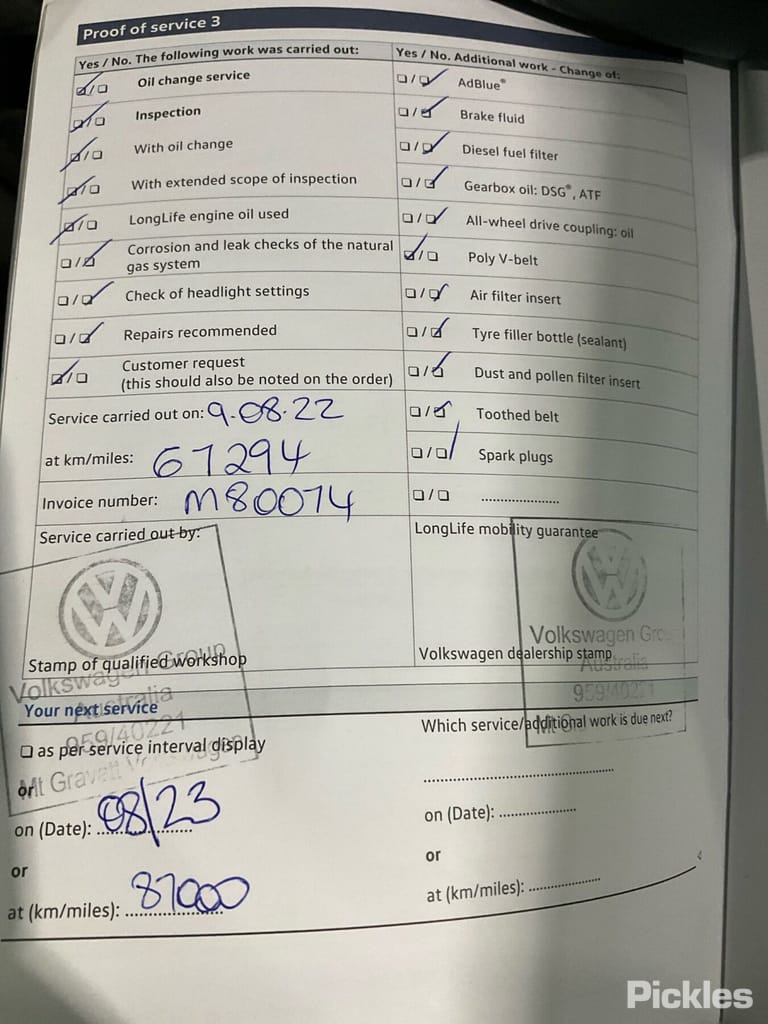 Proof of service 3
Yes / No. The following work was carried out:
☑/☐ Oil change service
☑/☐ Inspection
☑/☐ With oil change
☑/☐ With extended scope of inspection
☑/☐ LongLife engine oil used
☐/☑ Corrosion and leak checks of the natural
gas system
☐/☑ Check of headlight settings
☐/☑ Repairs recommended
☑/☐ Customer request
(this should also be noted on the order)
Service carried out on: 9.08.22
at km/miles: 67294
Invoice number: M80074
Service carried out by:
Stamp of qualified workshop
Volkswagen Group
Australia
959/40221
Mt Gravatt Volkswagen
Yes / No. Additional work - Change of:
☐/☑ AdBlue®
☐/☑ Brake fluid
☐/☑ Diesel fuel filter
☐/☑ Gearbox oil: DSG®, ATF
☐/☑ All-wheel drive coupling: oil
☑/☐ Poly V-belt
☐/☑ Air filter insert
☐/☑ Tyre filler bottle (sealant)
☐/☑ Dust and pollen filter insert
☐/☑ Toothed belt
☐/☑ Spark plugs
☐/☐ .....................
LongLife mobility guarantee
Volkswagen
Australia
959/40221
Volkswagen dealership stamp
Your next service
☐ as per service interval display
or
on (Date): 08/23
or
at (km/miles): 87000
Which service/additional work is due next?
on (Date): ....................
or
at (km/miles): ..................
Pickles